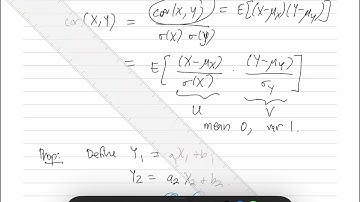 cor(X,Y) = cov(X,Y) / σ(X) σ(Y) = E[(X-μx)(Y-μy)]
= E[ (X-μx) / σ(X) · (Y-μy) / σy ]
U V
mean 0, var 1.
Prop: Define Y1 = a1X1 + b1
Y2 = a2 X2 + b2.